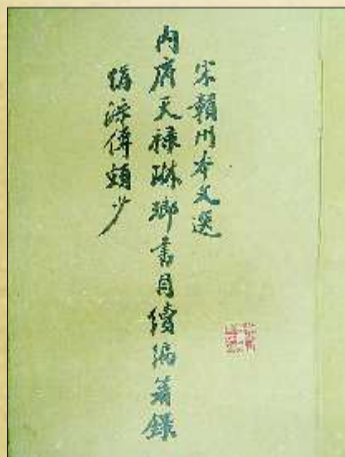 宋贛州本文選
內府天祿琳瑯書目續編著錄
傳頗少